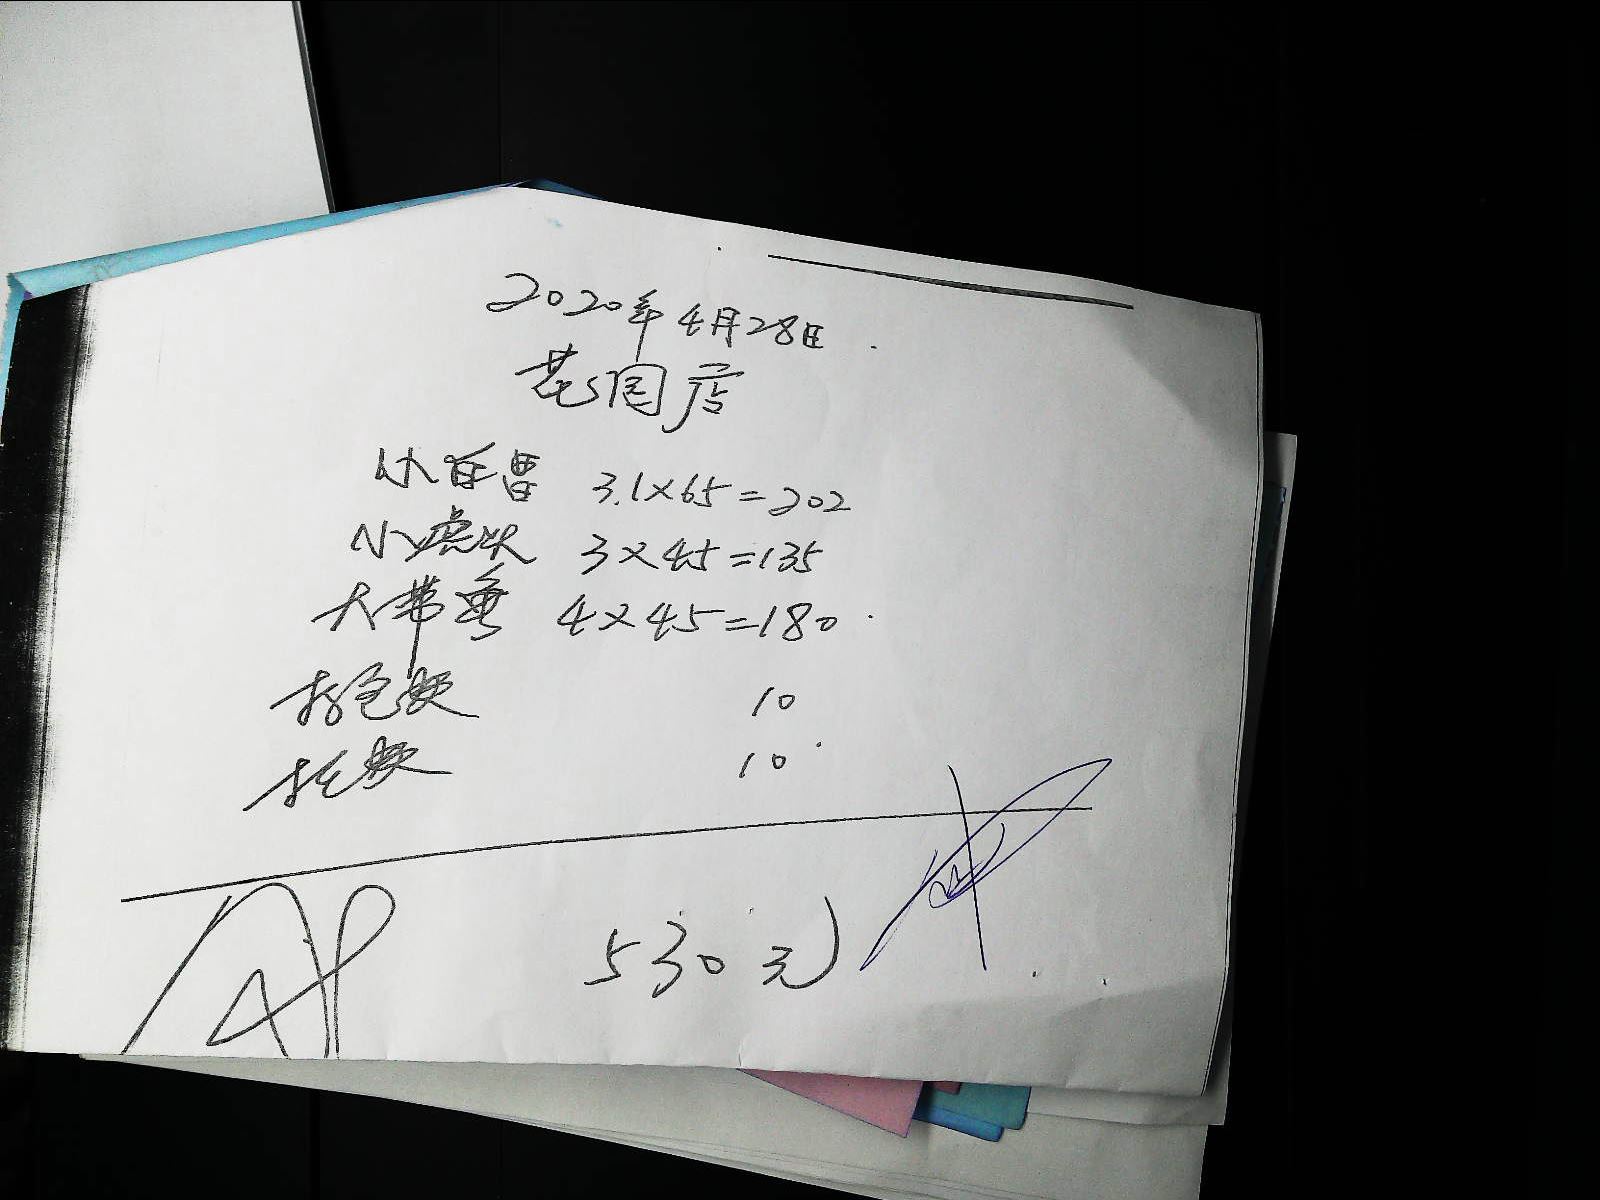 2020年4月28日
花园店
小百昌 3.1×65=202
小虎头 3×45=135
大带鱼 4×45=180
打包费 10
托费 10
530元